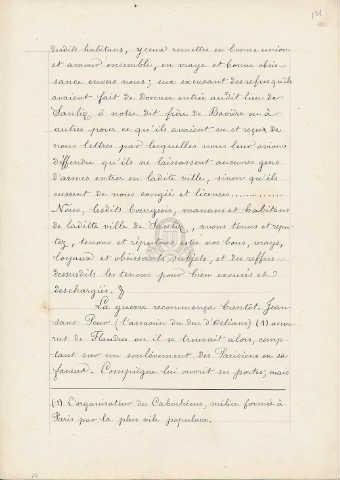 131
desdits habitans, yceux remettre en bonne union
et amour ensemble, en vraye et bonne obéis-
sance envers nous; eux excusant des refus qu'ils
avaient fait de donner entrée audit lieu de
Senlis à notre dit frère de Bavière ou à
autres pour ce qu'ils avaient eu et reçu de
nous lettres par lesquelles nous leur avions
deffendu qu'ils ne laissassent aucunes gens
d'armes entrer en ladite ville, sinon qu'ils
eussent de nous congié et licence............
Nous, lesdits bourgeois, manans et habitans
de ladite ville de Senlis, avons tenus et répu-
tez, tenons et réputons estre nos bons, vrays,
loyaux et obéissants subjets, et des reffus
dessusdits les tenons pour bien excusés et
deschargiés. »
La guerre recommença bientôt. Jean
sans Peur (l'assassin du duc d'Orléans) (1) accou-
rut de Flandre où il se trouvait alors, comp-
tant sur un soulèvement des Parisiens en sa
faveur. Compiègne lui ouvrit ses portes, mais
(1) L'organisateur des Cabochiens, milice formée à
Paris par la plus vile populace.